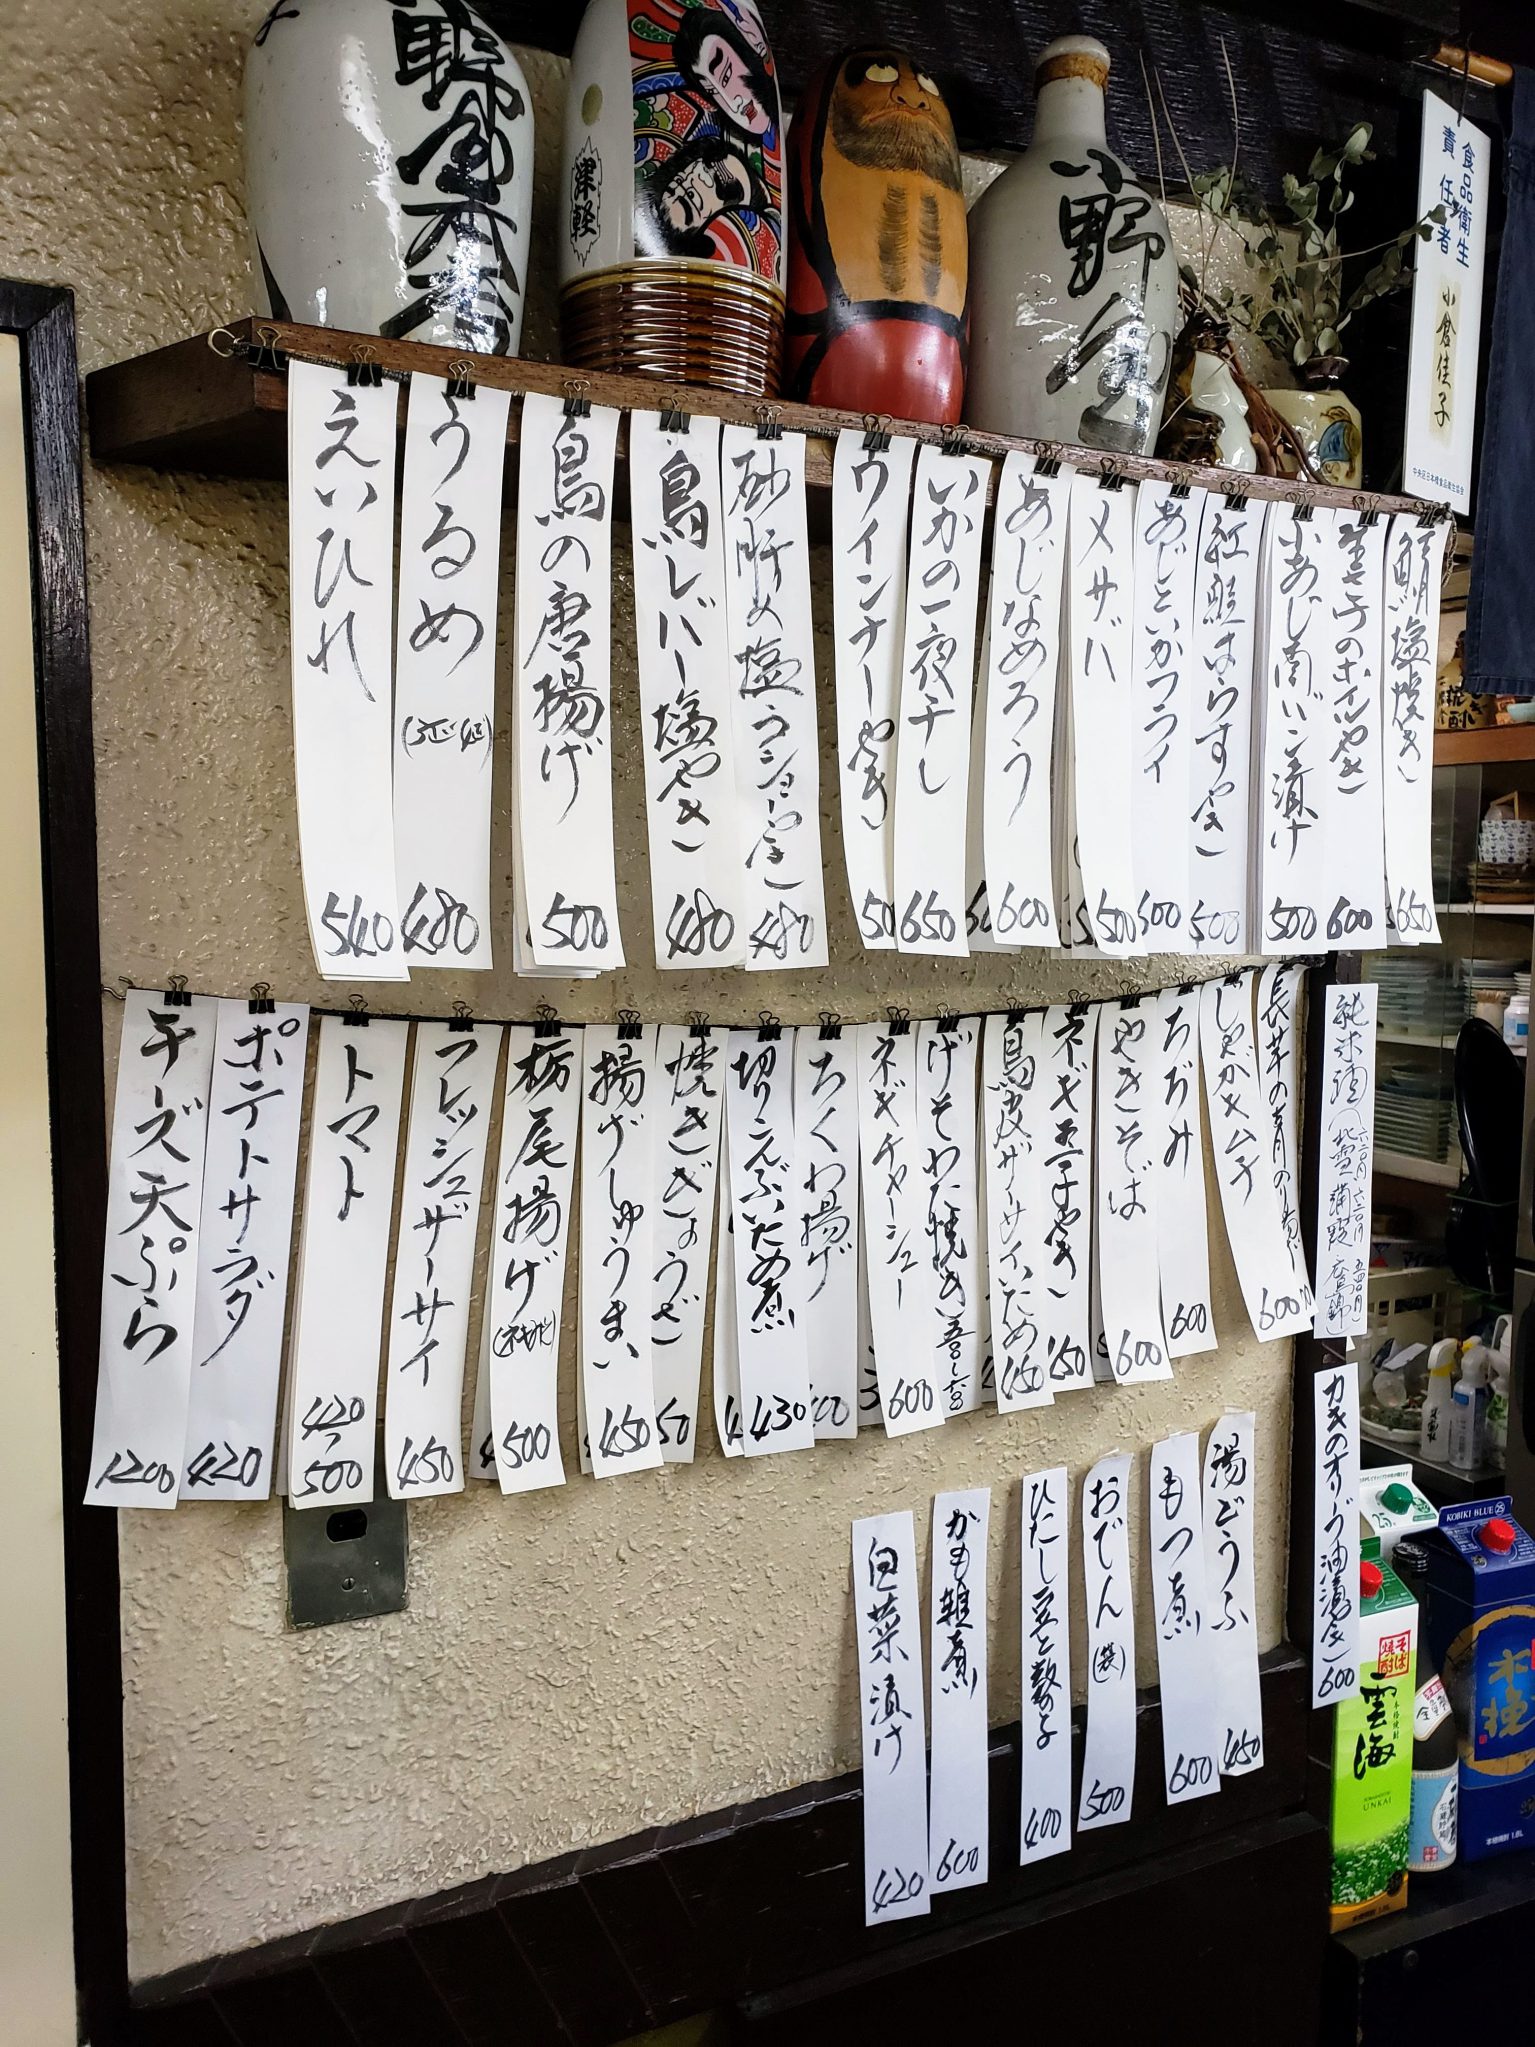 津軽
小野
食品衛生
責任者
小倉佳子
中央区日本橋食品衛生協会
鯖塩焼き 650
生ゲソのボイルやき 600
小あじ南ばん漬け 500
紅鮭はらすやき 500
あじといかフライ 500
メサバ 500
あじなめろう 600
いかの一夜干し 650
ウインナーやき 50
砂肝の塩コショーやき 480
鳥レバー塩やき 480
鳥の唐揚げ 500
うるめ 480
えいひれ 540
長芋の青のりあげ 600
じゃがキムチ 600
ちぢみ 600
やきそば 600
ネギ玉子やき 450
鳥皮ザーサイいため 450
げそわた焼き 五五〇〜六五〇
ネギチャーシュー 600
ちくわ揚げ 400
切りこんぶいため煮 430
焼きぎょうざ 50
揚げしゅうまい 450
栃尾揚げ(ネギみそ) 500
フレッシュザーサイ 450
トマト 420〜500
ポテトサラダ 420
チーズ天ぷら 1200
純米酒
北雪
カキのオリーブ油漬き 600
湯どうふ 450
もつ煮 600
おでん(袋) 500
ひたし豆と数の子 400
かも軽煮 600
白菜漬け 420
25
KOBIKI BLUE 25
そば焼酎
雲海
本格焼酎
UNKAI
木挽
本格焼酎 1.8L